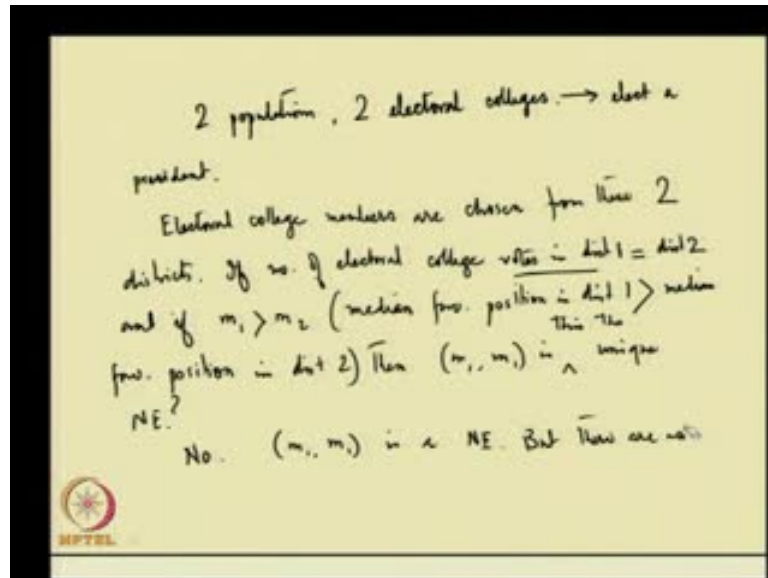 2 population, 2 electoral colleges. → elect a
president.
Electoral college members are chosen from these 2
districts. If no. of electoral college votes in dist 1 = dist 2
and if m₁ > m₂ (median fav. position in dist 1 > median
fav. position in dist 2) Then (m₁, m₁) is ^ This the unique
NE?
No. (m₁, m₁) is a NE. But there are
NPTEL